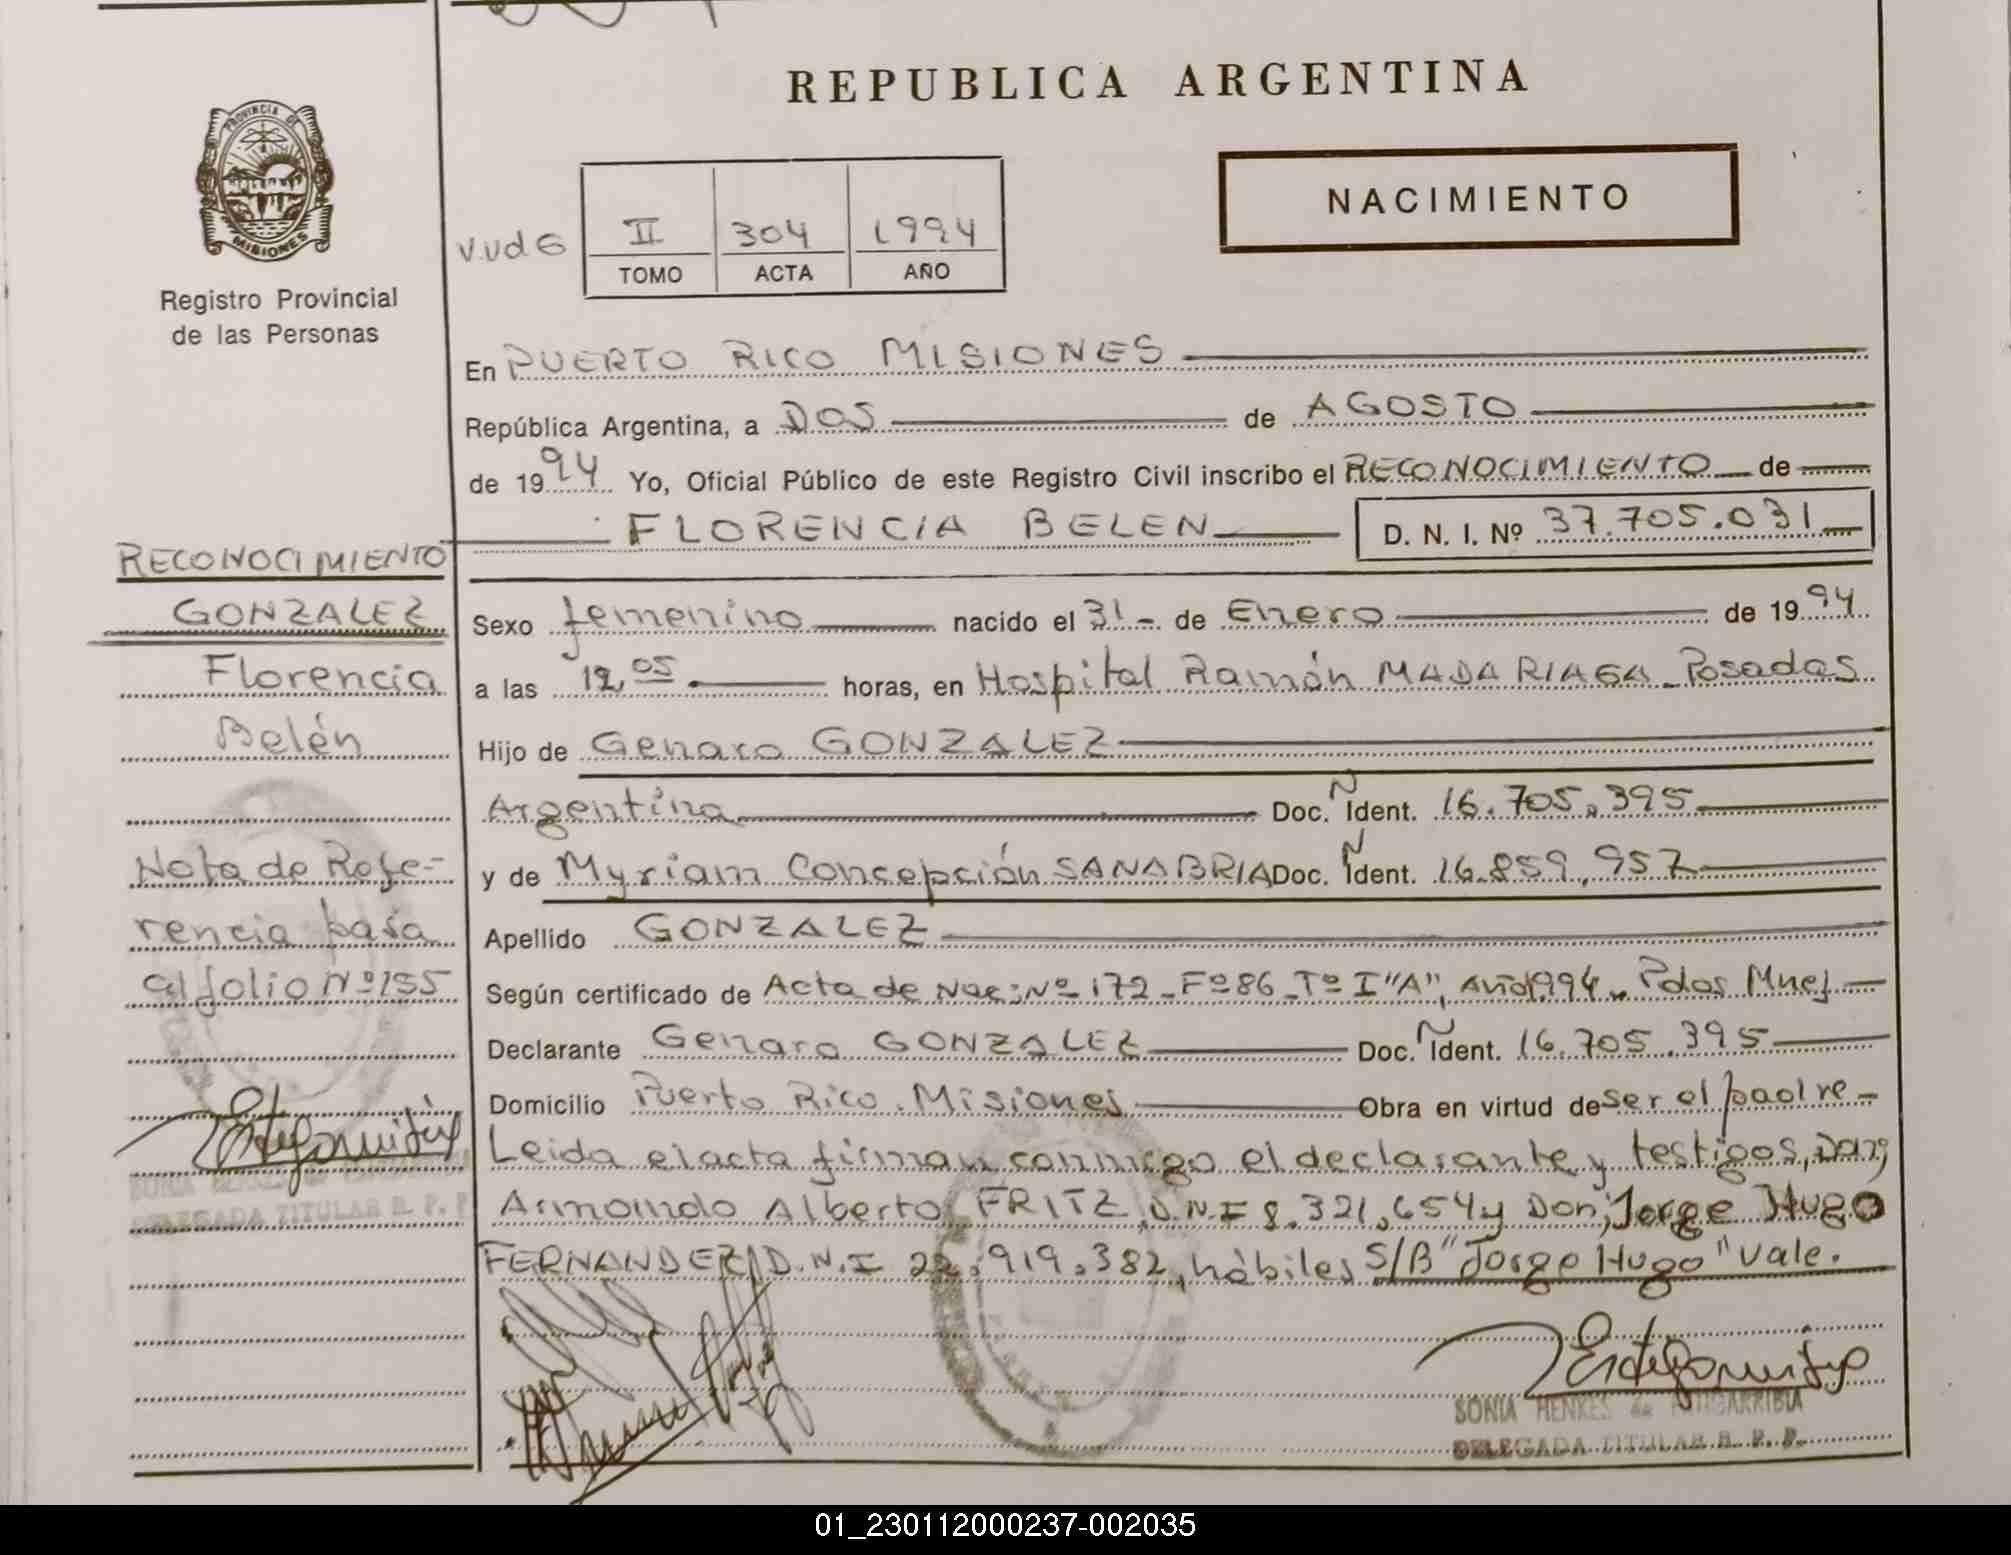 REPUBLICA ARGENTINA
PROVINCIA DE
MISIONES
Registro Provincial
de las Personas
NACIMIENTO
II 304 1994
TOMO ACTA AÑO
En PUERTO RICO MISIONES
República Argentina, a DOS de AGOSTO
de 1994 Yo, Oficial Público de este Registro Civil inscribo el RECONOCIMIENTO de
FLORENCIA BELEN D. N. I. Nº 37.705.031
RECONOCIMIENTO
GONZALEZ
Florencia
Belén
Nota de Refe-
rencia pasa
al folio Nº 155
SONIA HENKES de
DELEGADA TITULAR R. P. P.
Sexo femenino nacido el 31 - de Enero de 1994
a las 12,05 horas, en Hospital Ramón MADARIAGA - Posadas
Hijo de Genaro GONZALEZ
Argentina Doc. Ñ Ident. 16.705.395
y de Myriam Concepción SANABRIA Doc. Ñ Ident. 16.859.957
Apellido GONZALEZ
Según certificado de Acta de Nac: Nº 172 - Fº 86 - Tº I "A", Año 1994 - Pdas Mnes
Declarante Genaro GONZALEZ Doc. Ñ Ident. 16.705.395
Domicilio Puerto Rico. Misiones Obra en virtud de ser el padre -
Leida el acta firman conmigo el declarante y testigos, Don;
Armando Alberto FRITZ, D.N.I 8.321.654 y Don; Jorge Hugo
FERNANDEZ D.N.I 22.919.382, hábiles S/B "Jorge Hugo" Vale.
SONIA HENKES de
DELEGADA TITULAR R. P. P.
01_230112000237-002035